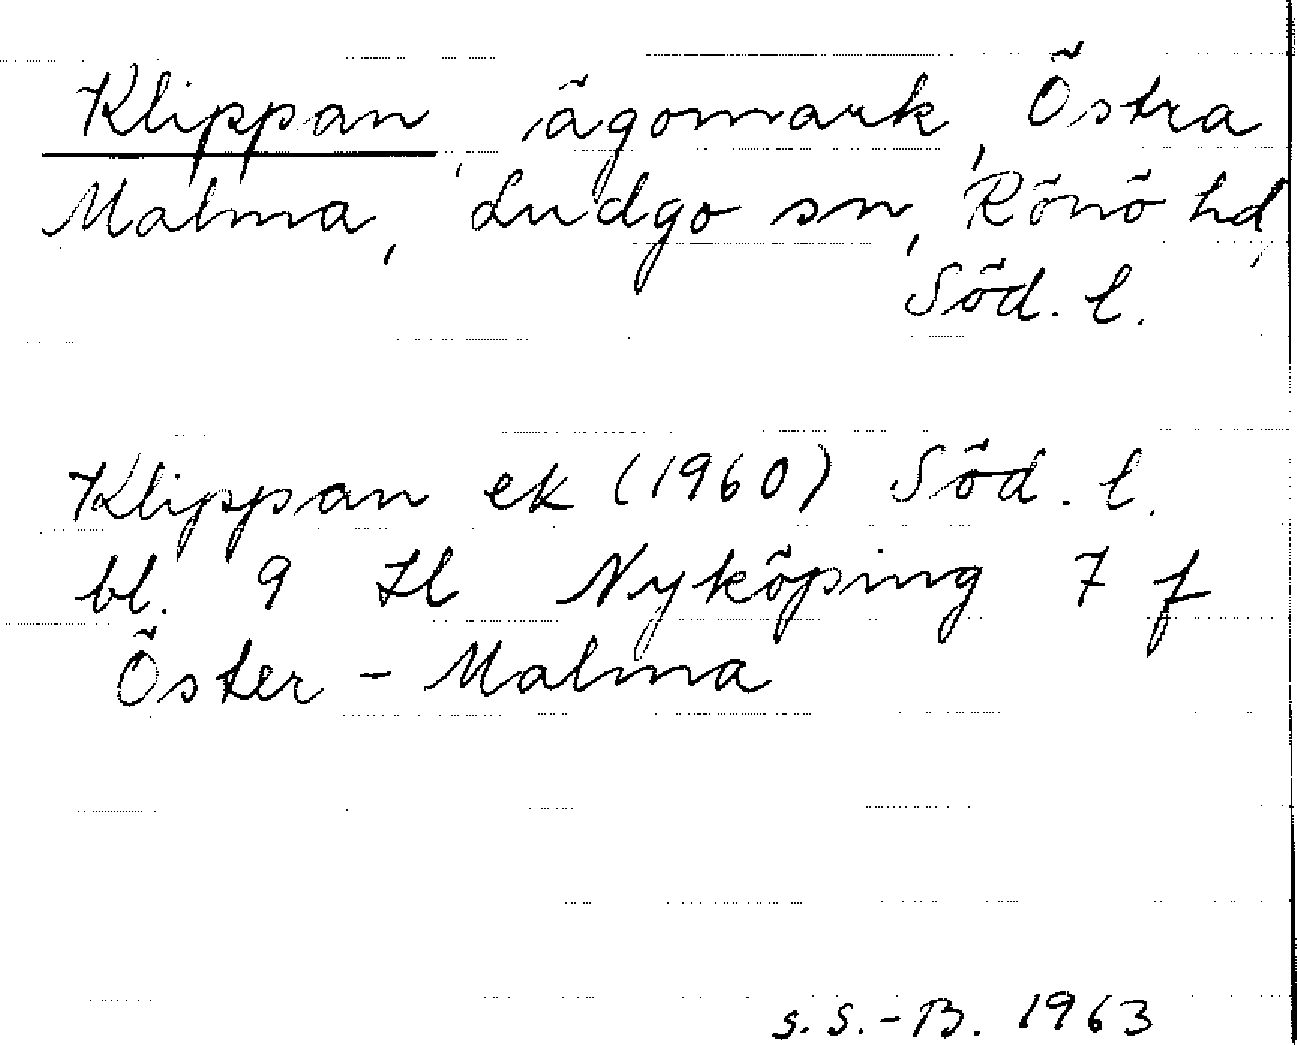 Klippan, ägomark, Östra
Malma, Ludgo sn, Rönö hd,
Söd. l.
Klippan ek (1960) Söd. l.
bl. 9 Il Nyköping 7 f
Öster-Malma
S.S.-B. 1963